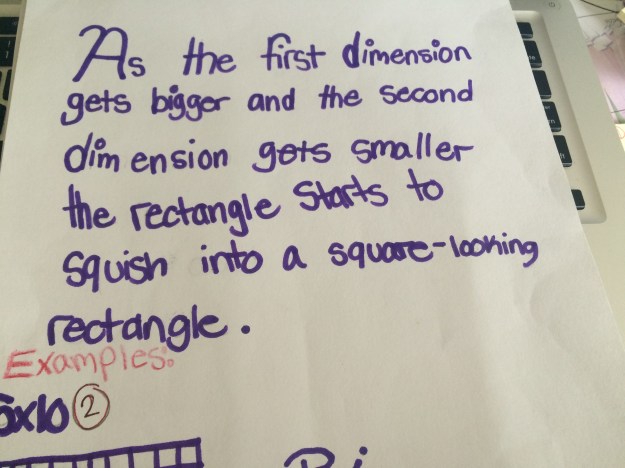 As the first dimension
gets bigger and the second
dimension gets smaller
the rectangle starts to
squish into a square-looking
rectangle.
Examples:
5x10 ②